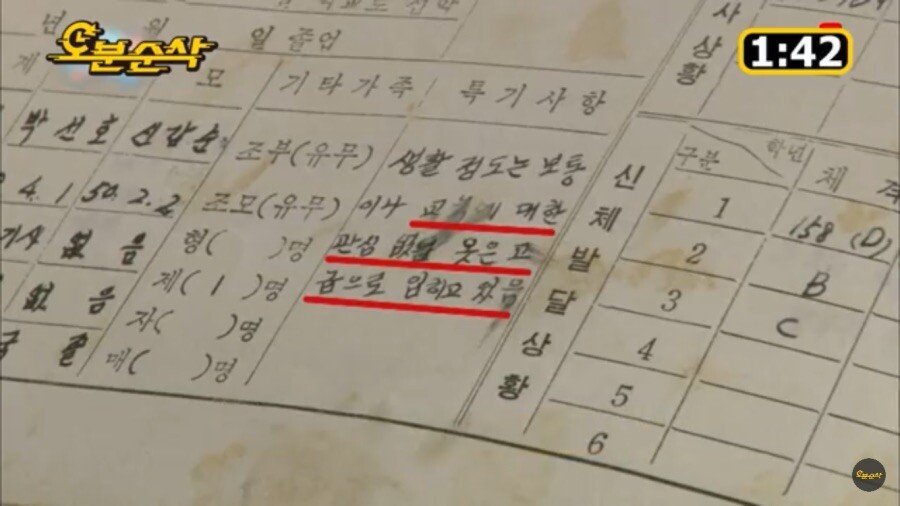 오분순삭
1:42
년 월 일 졸업
모 기타가족 특기사항
박선호 신갑순
조부(유무) 생활 정도는 보통
4.1 50.2.2 조모(유무) 이나 대한
없음 형( )명 관심 옷은 고
없음 제(1)명 급으로 입히고 있음
자( )명
매( )명
사상황
신체발달상황
구분 학년 체격
1 158 (D)
2 B
3 C
4
5
6
오분순삭